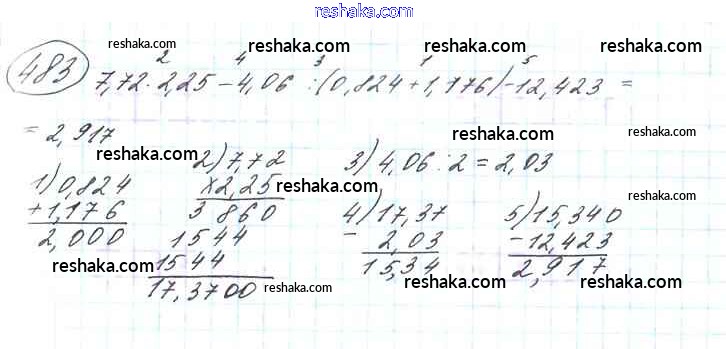 www.reshaka.com
reshaka.com reshaka.com reshaka.com
2 4 3 1 5
483 7,72 · 2,25 - 4,06 : (0,824 + 1,176) - 12,423 =
= 2,917
reshaka.com reshaka.com reshaka.com
1) 0,824
+ 1,176
2,000
2) 7,72
× 2,25
3 860
1544
1544
17,3700
3) 4,06 : 2 = 2,03
4) 17,37
- 2,03
15,34
5) 15,340
- 12,423
2,917
reshaka.com reshaka.com reshaka.com
reshaka.com reshaka.com reshaka.com
reshaka.com reshaka.com reshaka.com